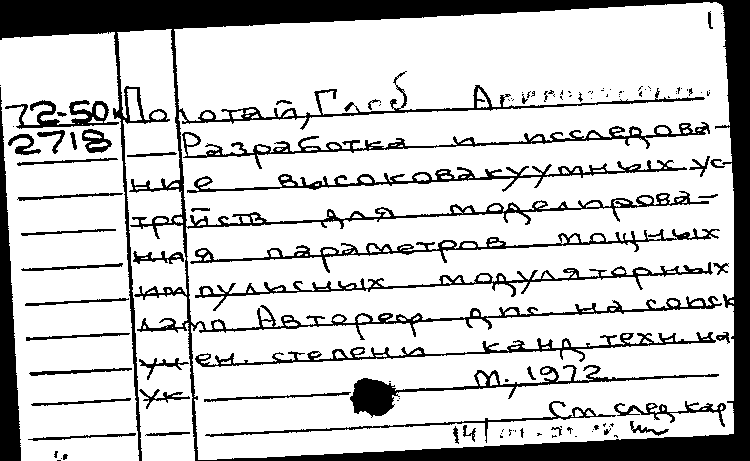 1
72-50к Полотай, Глеб
2718 Разработка и исследова-
ние высоковакуумных ус-
тройств для моделирова-
ния параметров мощных
импульсных модуляторных
ламп Автореф. дис. на соиск
учен. степени канд. техн. на-
ук. М., 1972
См. след. карт
14/